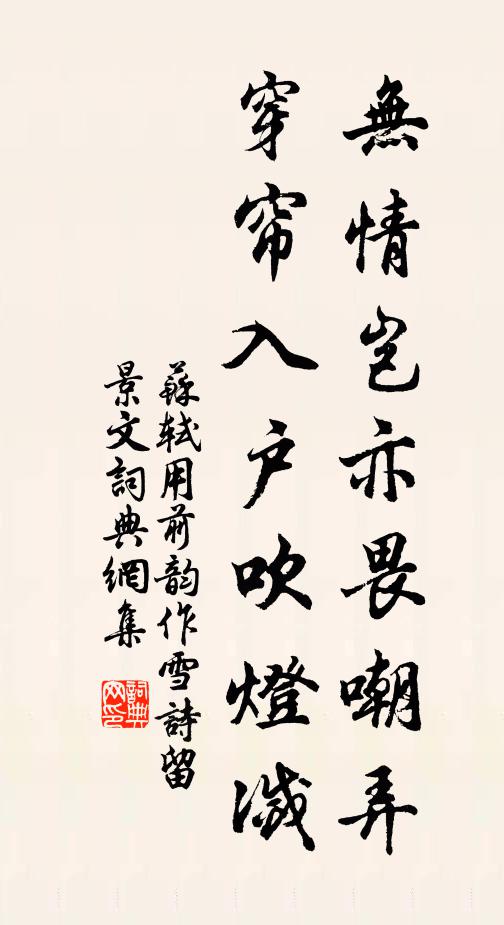 無情豈亦畏嘲弄
穿帘入户吹燈滅
蘇軾用前韵作雪詩留
景文詞典網集
詞典
网印